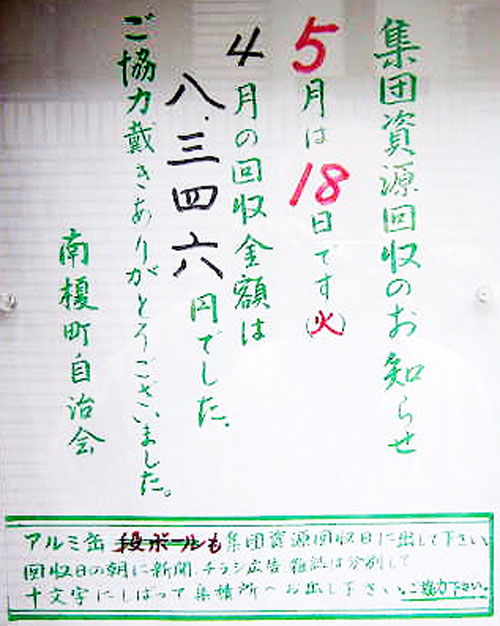 集団資源回収のお知らせ
5月は18日です(火)
4月の回収金額は
八.三四六円でした.
ご協力戴きありがとうございました。
南榎町自治会
アルミ缶段ボールも集団資源回収日に出して下さい.
回収日の朝に新聞.チラシ広告雑誌は分別して
十文字にしばって集積所へお出し下さい。ご協力下さい。